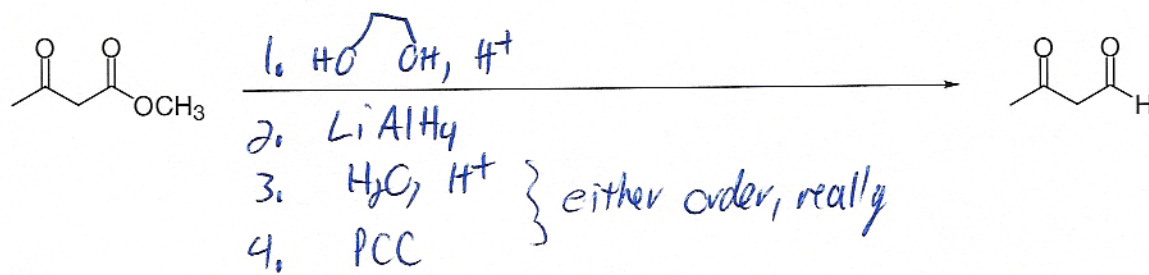 O O OCH3
1. HO OH, H+
2. LiAlH4
3. H2O, H+ } either order, really
4. PCC
O O H